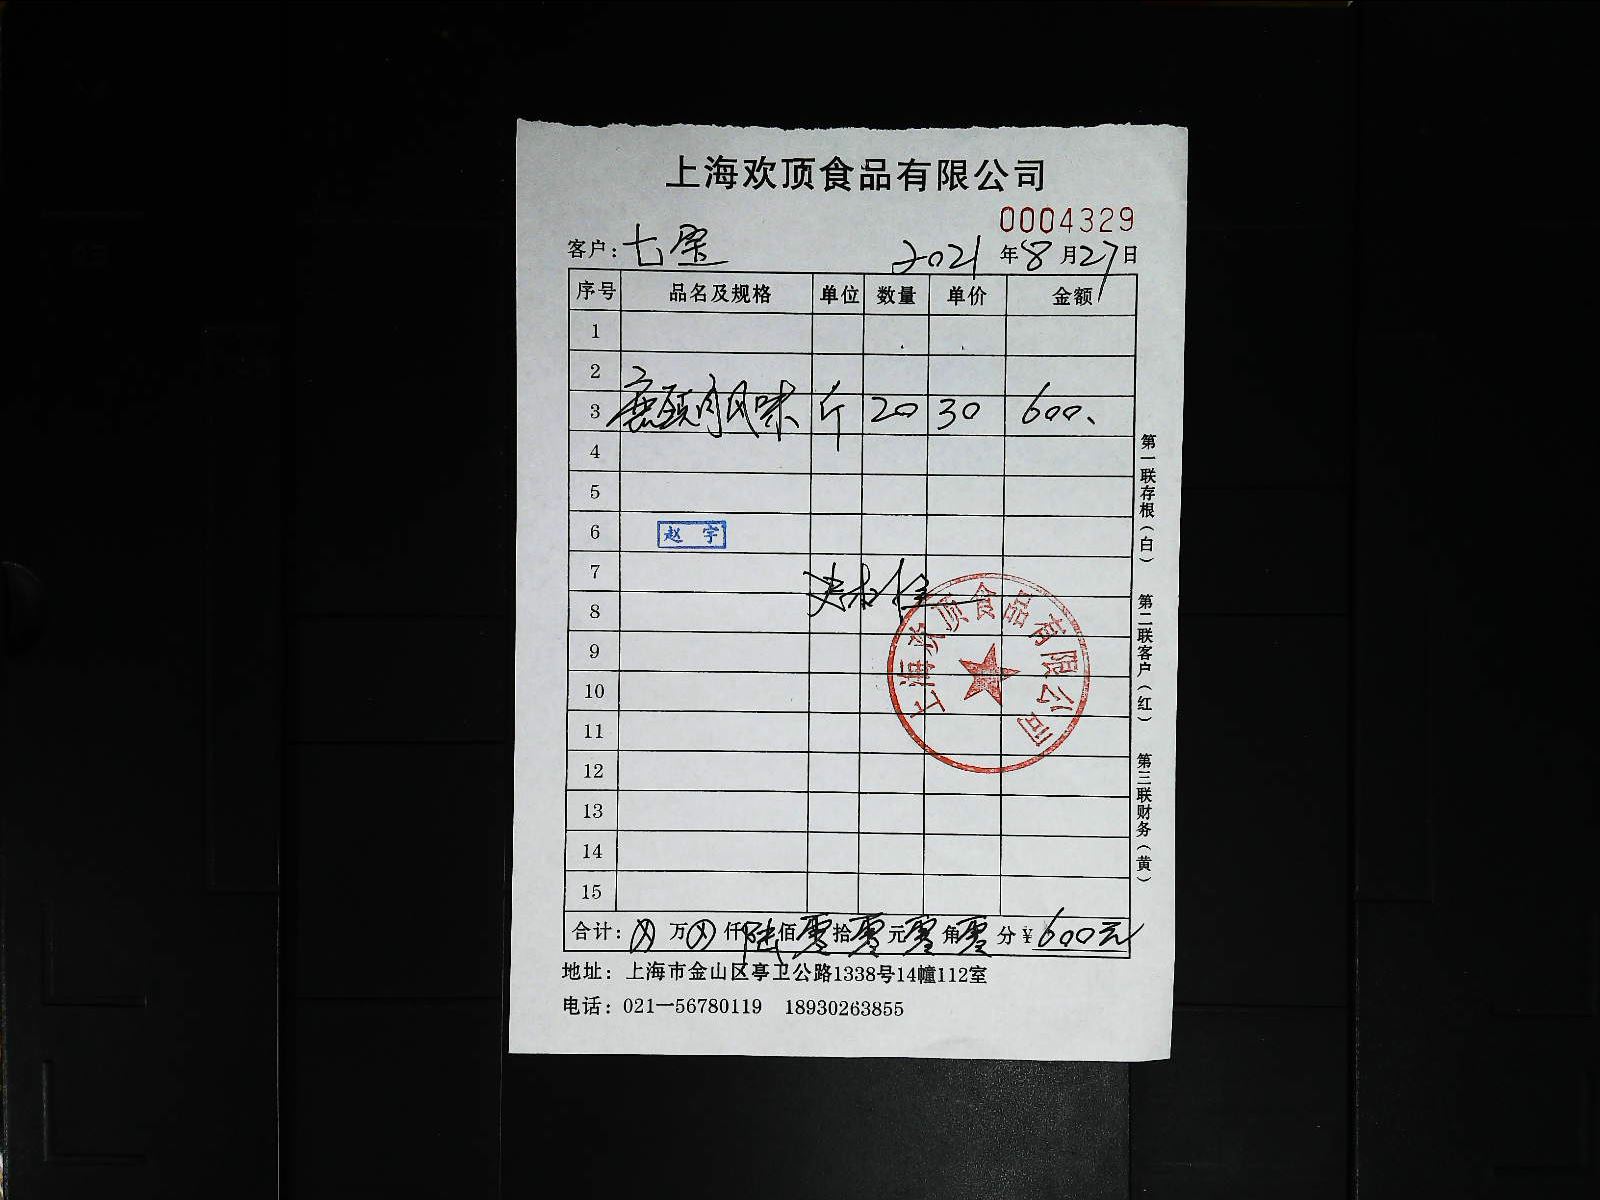 上海欢顶食品有限公司
0004329
客户：七宝 2021年8月27日
序号 品名及规格 单位 数量 单价 金额
1
2
3 风味 斤 20 30 600、
4
5
6 赵宇
7
8
9
10
11
12
13
14
15
上海欢顶食品有限公司
合计：⊗万⊗仟陆佰零拾零元零角零分￥600元
地址：上海市金山区亭卫公路1338号14幢112室
电话：021—56780119 18930263855
第一联存根（白）
第二联客户（红）
第三联财务（黄）